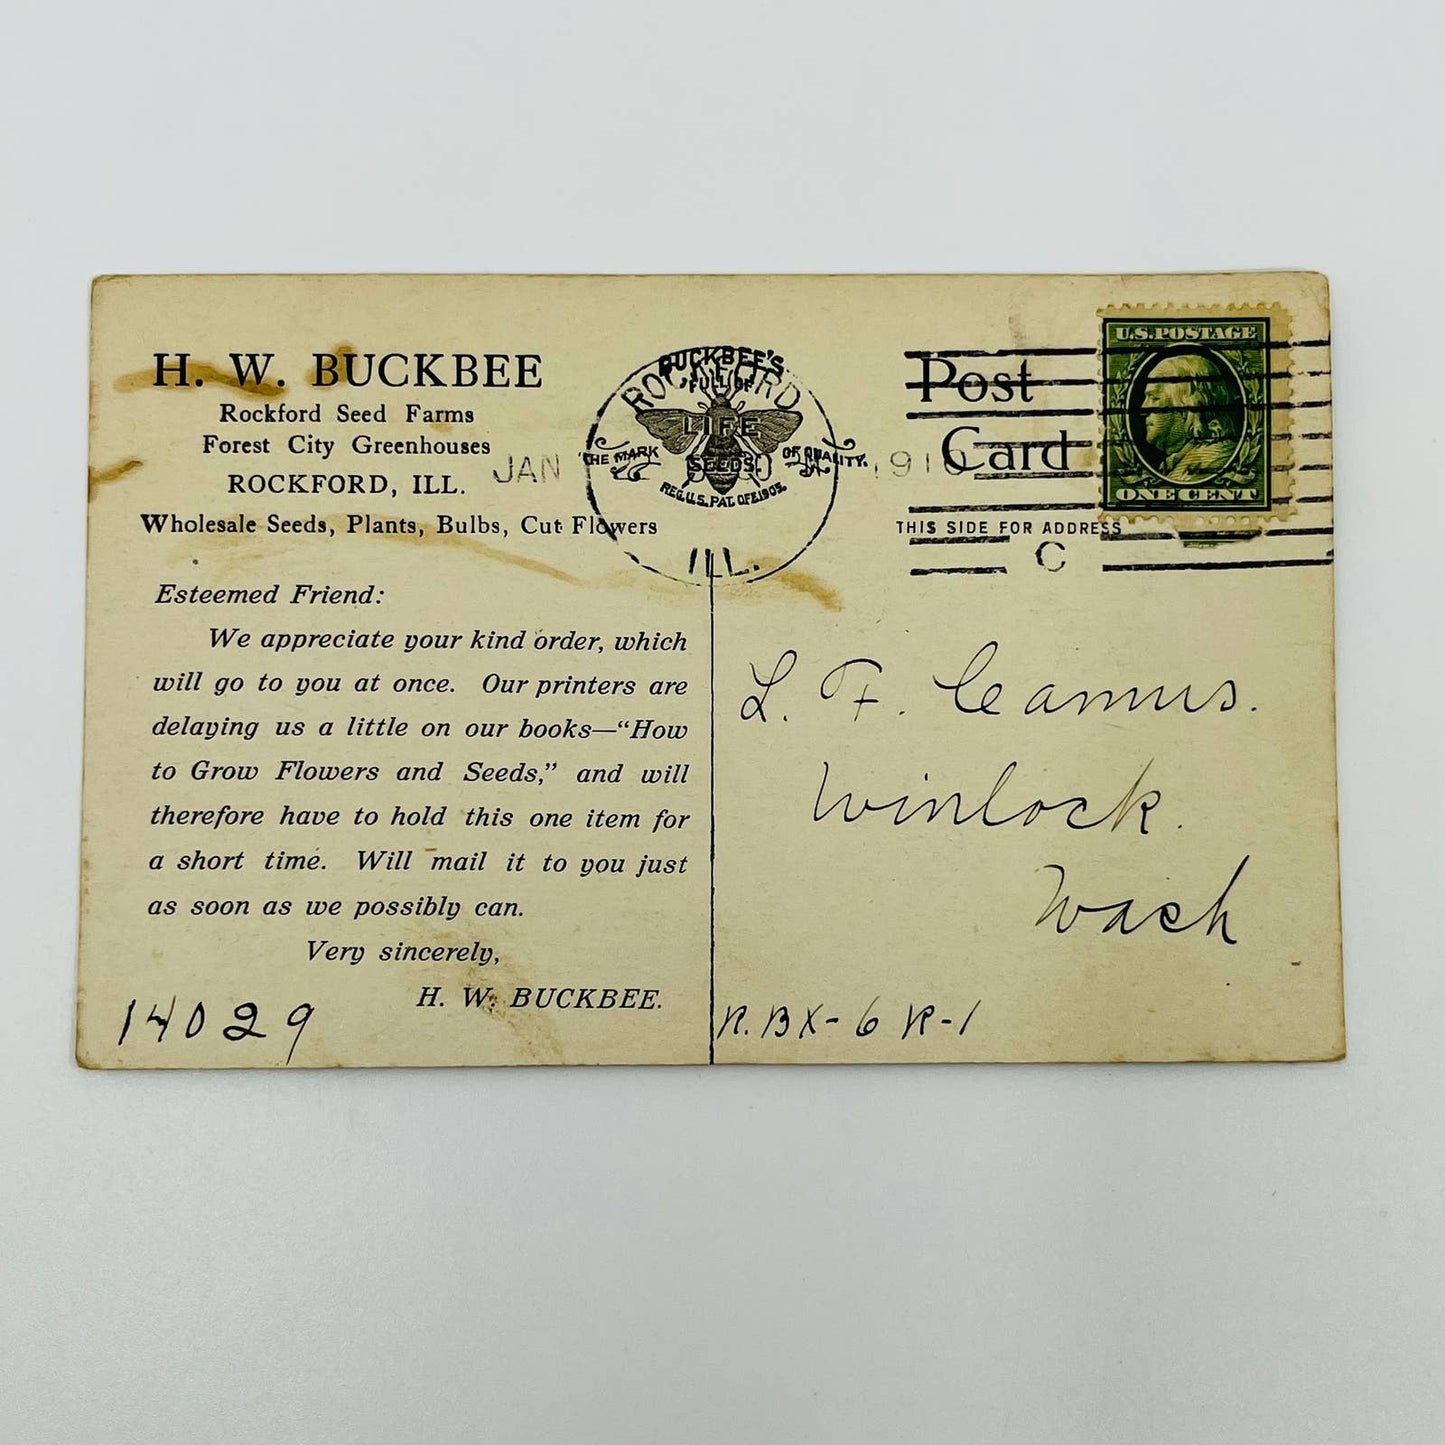 H. W. BUCKBEE
Rockford Seed Farms
Forest City Greenhouses
ROCKFORD, ILL.
Wholesale Seeds, Plants, Bulbs, Cut Flowers
BUCKBEE'S
"FULL OF
LIFE"
SEEDS.
THE MARK OF QUALITY.
REG. U.S. PAT. OFF. 1905.
ROCKFORD
JAN 1910
ILL.
Post
Card
THIS SIDE FOR ADDRESS
C
U.S. POSTAGE
ONE CENT
Esteemed Friend:
We appreciate your kind order, which
will go to you at once. Our printers are
delaying us a little on our books—"How
to Grow Flowers and Seeds," and will
therefore have to hold this one item for
a short time. Will mail it to you just
as soon as we possibly can.
Very sincerely,
H. W. BUCKBEE.
14029
L. F. Camus.
Winlock.
Wash
R. BX-6 R-1